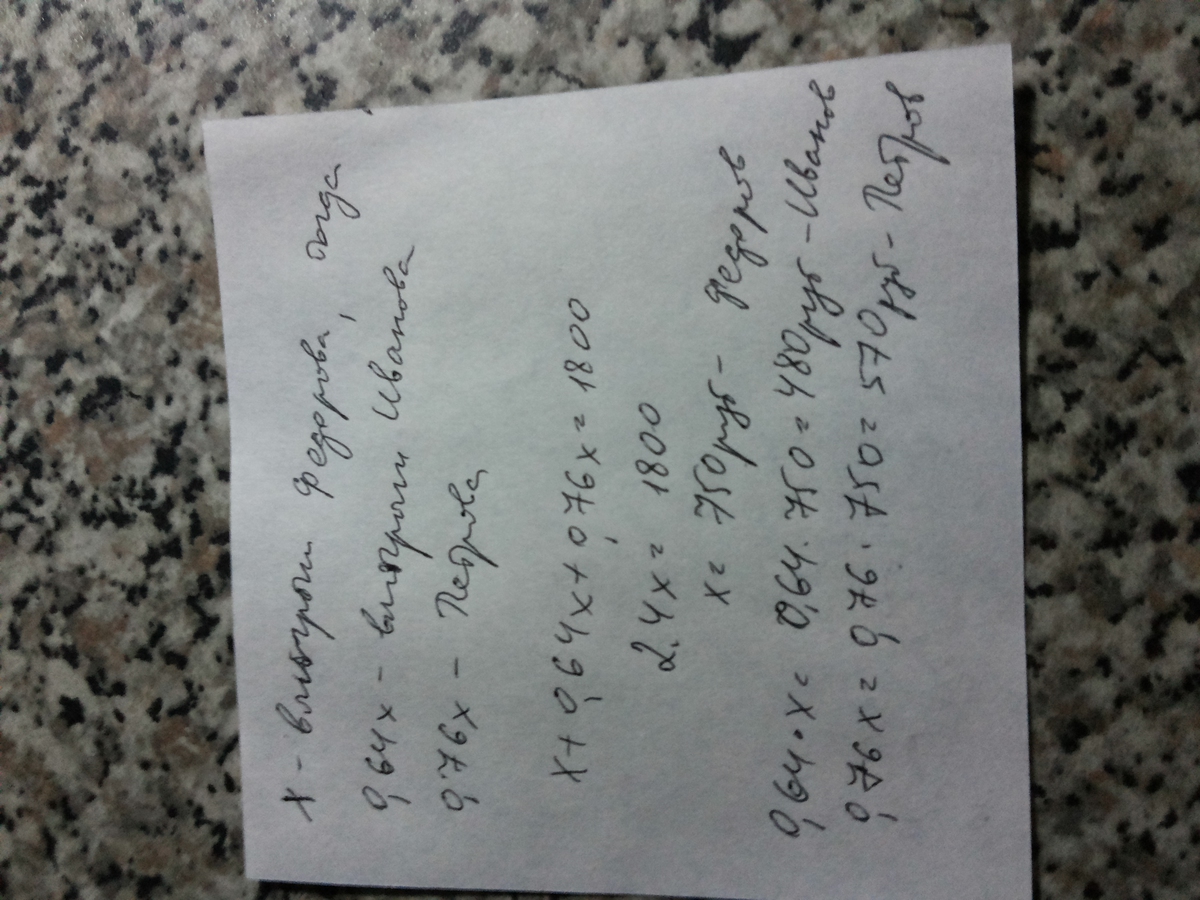 x - выигрыш Федорова, тогда
0,64x - выигрыш Иванова
0,76x - Петрова
x + 0,64x + 0,76x = 1800
2.4x = 1800
x = 750 руб - Федоров
0,64 · x = 0,64 · 750 = 480 руб - Иванов
0,76x = 0,76 · 750 = 570 руб - Петров